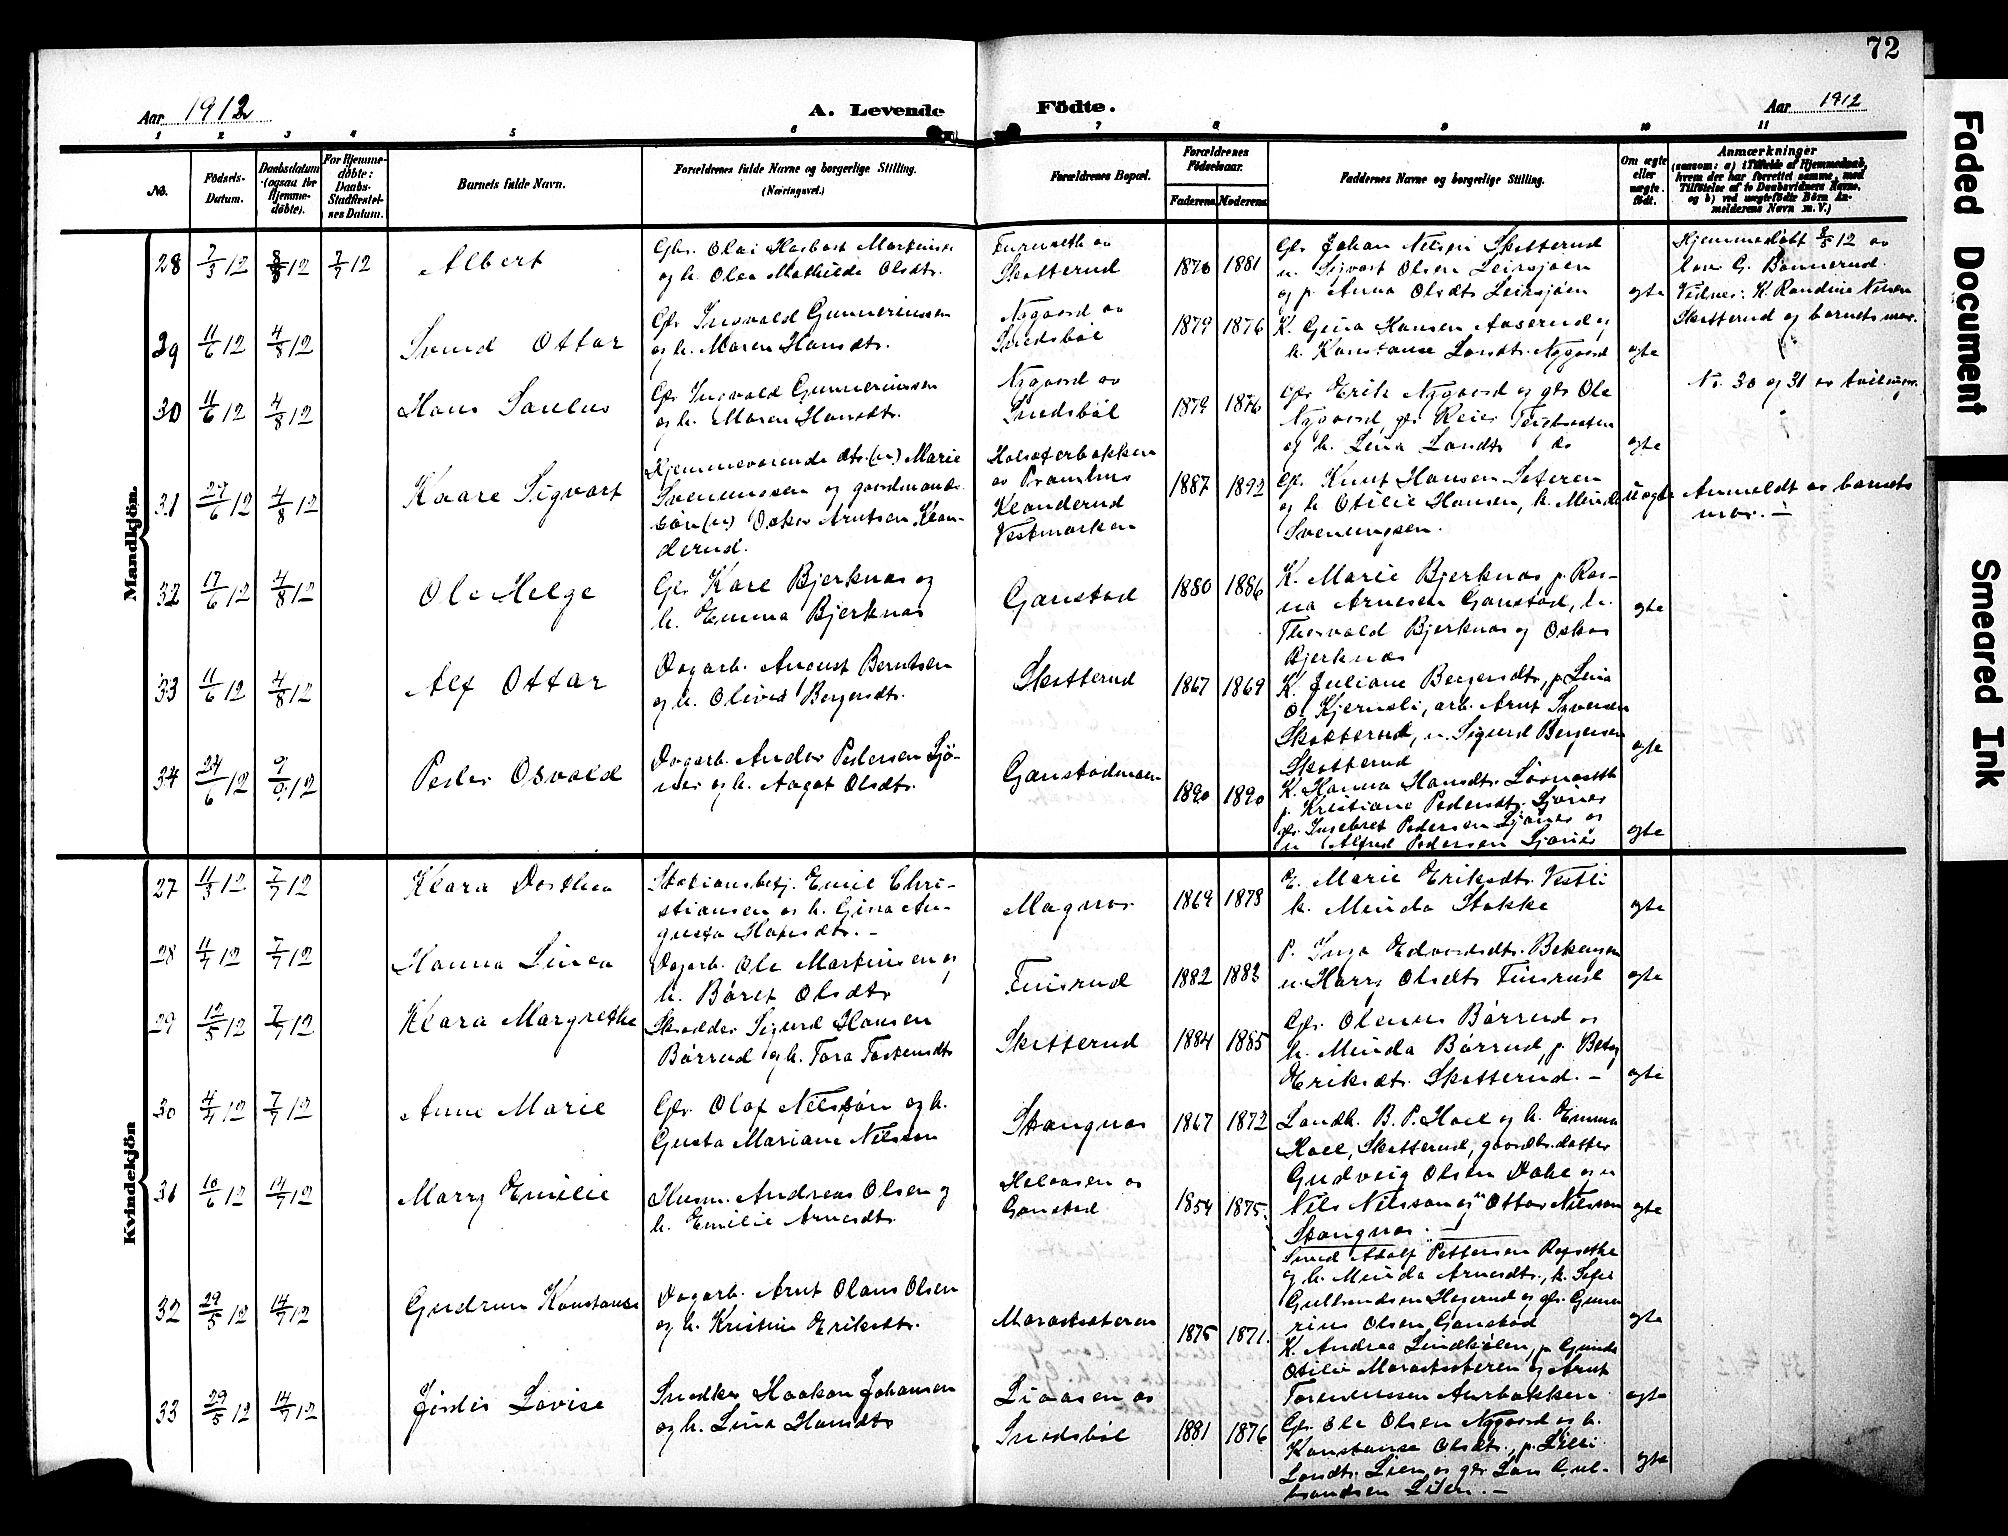 72
Aar 1912
A. Levende
Födte.
Aar 1912
1 2 3 4 5 6 7 8 9 10 11
No.
Födsels-
Datum.
Daabsdatum
(ogsaa for
Hjemme-
døbte).
For Hjemme-
døbte:
Daabs-
Stadfæstel-
ses Datum.
Barnets fulde Navn.
Forældrenes fulde Navne og borgerlige Stilling.
(Næringsvei.)
Forældrenes Bopæl.
Forældrenes
Födselsaar.
Faderens. Moderens.
Faddernes Navne og borgerlige Stilling.
Om ægte
eller
uægte
födt.
Anmærkninger
(saasom: a) i Tilfælde af Hjemmedaab,
hvem der har forrettet samme, med
Tilföielse af to Daabsvidners Navne,
og b) ved uægtefödte Börn An-
melderens Navn m. V.)
Mandkjön.
28 7/3 12 8/3 12 7/7 12
Albert
Gbr. Olai Martinsen
og h. Olea Mathilde Olsdtr.
Furuseth av
Skotterud
1876 1881
Gbr Johan Nilsen Skotterud
u. Sigvart Olsen Leirsjøen
og p. Anna Olsdtr Leirsjøen
egte
Hjemmedøbt 12 av
G. Bonnerud.
Vidner: K. Randine Nilsen
Skotterud og barnets mor.
29 11/6 12 4/8 12
Svend Ottar
Gbr Ingvald Gunneriussen
og h. Maren Hansdtr.
Nygaard av
Snedsbøl
1879 1876
K. Gina Hansen Aaserud og
h. Konstanse Larsdtr. Nygaard
egte
30 11/6 12 4/8 12
Hans Paulus
Gbr Ingvald Gunneriussen
og h. Maren Hansdtr.
Nygaard av
Snedsbøl
1879 1876
Gbr Erik Nygaard og gbr Ole
Nygaard, gbr Reier
og h. Lina Larsdtr do
egte
No. 30 og 31 av
31 27/6 12 4/8 12
Kaare Sigvart
Hjemmeværende dtr. (u.) Marie
Svenungsen og gaardmands-
søn (u.) Oskar Arntsen Klan-
derud.
av Pramhus
Klanderud
Vestmarken
1887 1892
Gbr. Knut Hansen Seteren
og h Otilie Hansen, h. Minda
Svenungsen.
uegte
Anmeldt av barnets
mor. –
32 17/6 12 4/8 12
Ole Helge
Gbr Karl Bjerknæs og
h. Emma Bjerknæs
Gaustad
1880 1886
K. Marie Bjerknæs p. Rag-
na Arnesen Gaustad, u.
Thorvald Bjerknæs og Oskar
Bjerknæs
egte
33 11/6 12 4/8 12
Alf Ottar
Dagarb. August Berntsen
og h. Olivia Bergersdtr.
Skotterud
1867 1869
K. Juliane Bergersdtr, p. Lina
O. Kjernsli, arb. Arnt Syversen
Skotterud, u. Sigurd Bergersen
Skotterud
egte
34 24/6 12 9/9 12
Peder Osvald
Dagarb. Anders Pedersen Sjø-
næs og h. Aagot Olsdtr.
Gaustadmoen
1890 1890
K. Hanna Hansdtr.
p. Kristiane Pedersdtr. Sjønæs
gbr. Ingebret Pedersen Sjønæs og
u Alfred Pedersen Sjønæs
egte
Kvindekjön
27 11/3 12 7/7 12
Klara Dorthea
Stationsbetj. Emil Chri-
stiansen og h. Gina Au-
gusta . –
Magnor
1869 1873
E. Marie Eriksdtr. Vestli
h. Minda Stokke
egte
28 12 7/7 12
Hanna Linea
Dagarb. Ole Martinsen og
h. Børet Olsdtr
Finsrud
1882 1883
P. Inga Edvardsdtr.
u. Harry Olsdtr Finsrud
egte
29 12/5 12 7/7 12
Klara Margrethe
Skrædder Sigurd Hansen
Børrud og h. Tora Torkensdtr
Skotterud
1884 1885
Gbr. Olenus Børrud og
h. Minda Børrud, p. Betsy
Eriksdtr. Skotterud. –
egte
30 12 7/7 12
Anne Marie
Gbr. Olaf Nilssøn og h.
Gusta Mariane Nilsson
Stangnæs
1867 1872
Landh. B. P. Hoel og h. Emma
Hoel, Skotterud, gaardbr.datter
Gudveig Olsen Dahl og u
Nils Nilsson og Ottar Nilsson
Stangnæs. –
egte
31 10/6 12 14/7 12
Marry Emilie
Husm. Andreas Olsen og
h. Emilie Arnesdtr.
Holaasen av
Gaustad
1854 1875.
Smed Adolf Pettersen
og h. Minda Arnesdtr., k. Sofie
Gulbrandsen Haserud og gbr. Gune-
rius Olsen Gaustad
egte
32 29/5 12 14/7 12
Gudrun Konstanse
Dagarb. Arnt Olaus Olsen
og h. Kristine Eriksdtr.
1875 1871.
K. Andrea, p. Gunda
Otilie og Arnt
egte
33 29/5 12 14/7 12
Jørdis Lovise
Snedker Haakon Johansen
og h. Lina Hansdtr
Liaasen av
Snedsbøl
1881 1876
Gbr. Ole Olsen Nygaard og h.
Konstanse Olsdtr., p. Lilli
Larsdtr. Lien og gbr Lars Gul-
brandsen Lien. –
egte
Faded Document
Smeared Ink